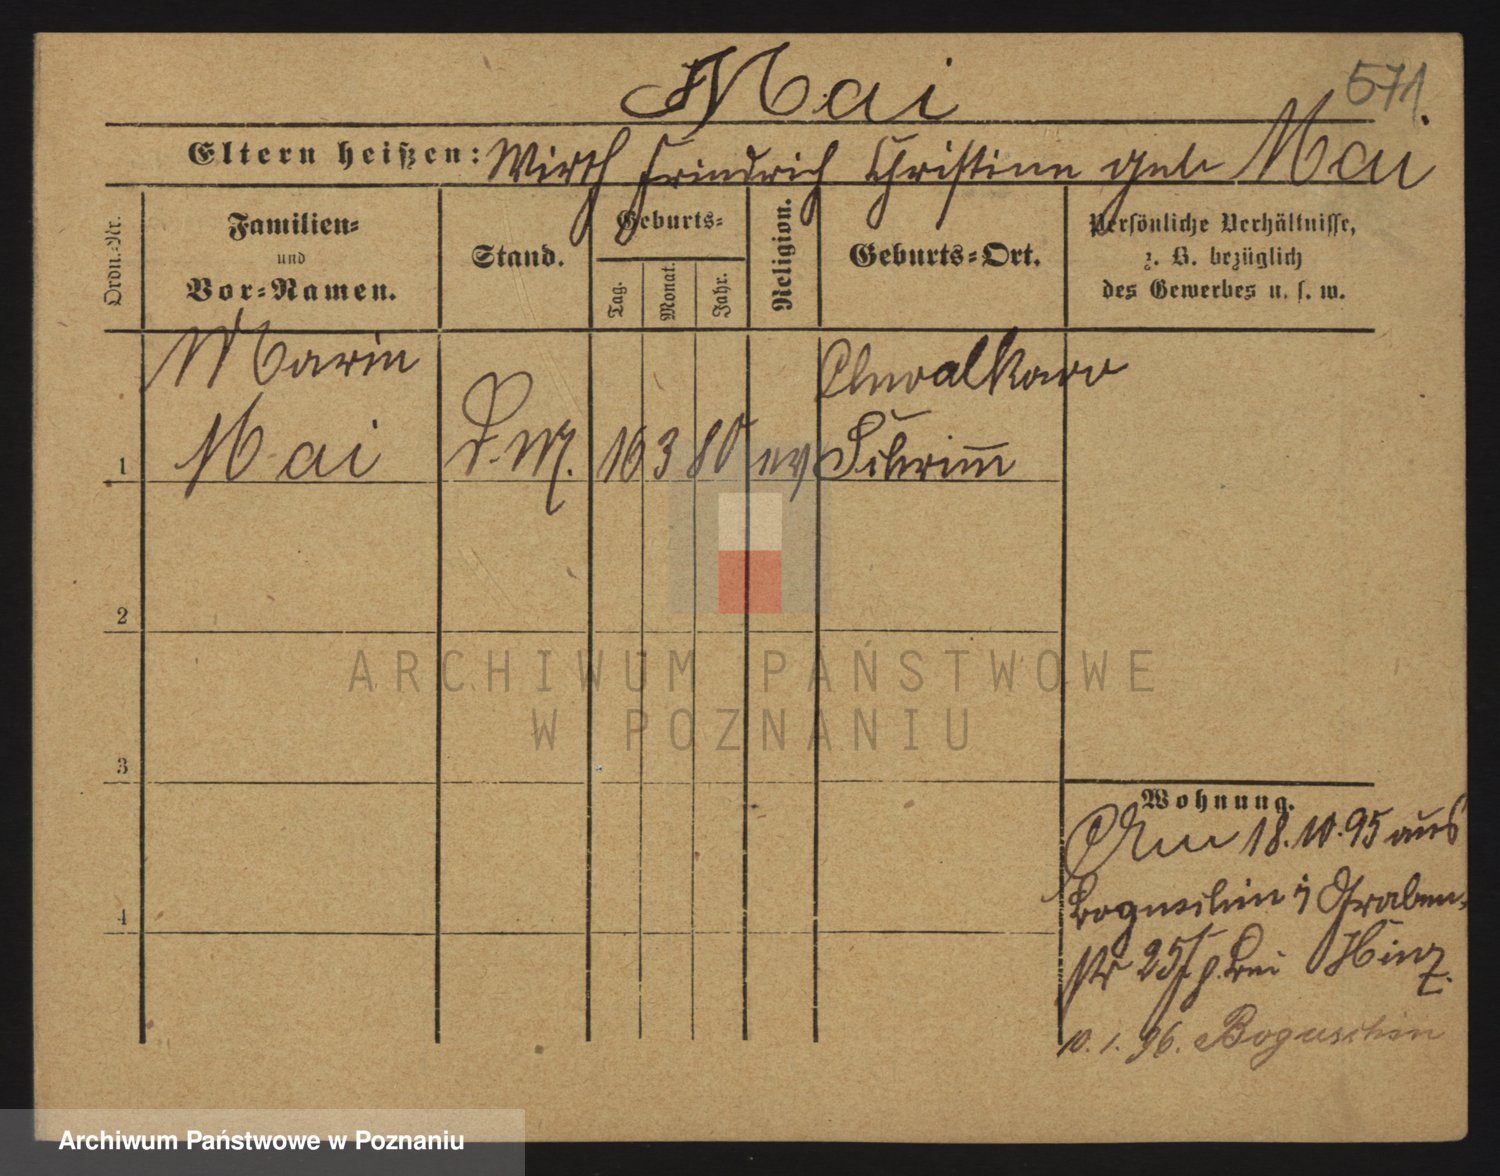 Mai
571.
Eltern heißen: Wirth Friedrich Christine geb Mai
Ordn.-Nr.
Familien-
und
Vor-Namen.
Stand.
Geburts-
Tag.
Monat.
Jahr.
Religion.
Geburts-Ort.
Persönliche Verhältnisse,
z. B. bezüglich
des Gewerbes u. s. w.
Marie
Mai
1
D. M.
16 3 80 ev
Chwalkowo
Schrimm
2
3
4
Wohnung.
Am 18.10.95 aus
Boguschin Graben-
str 25 p. bei Hinz.
10. 1. 96. Boguschin
ARCHIWUM PAŃSTWOWE
W POZNANIU
Archiwum Państwowe w Poznaniu